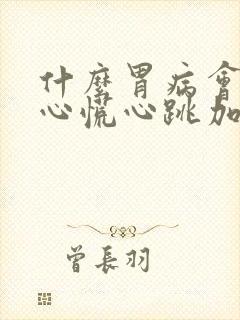 什麼胃病會
心慌心跳加
曾長羽